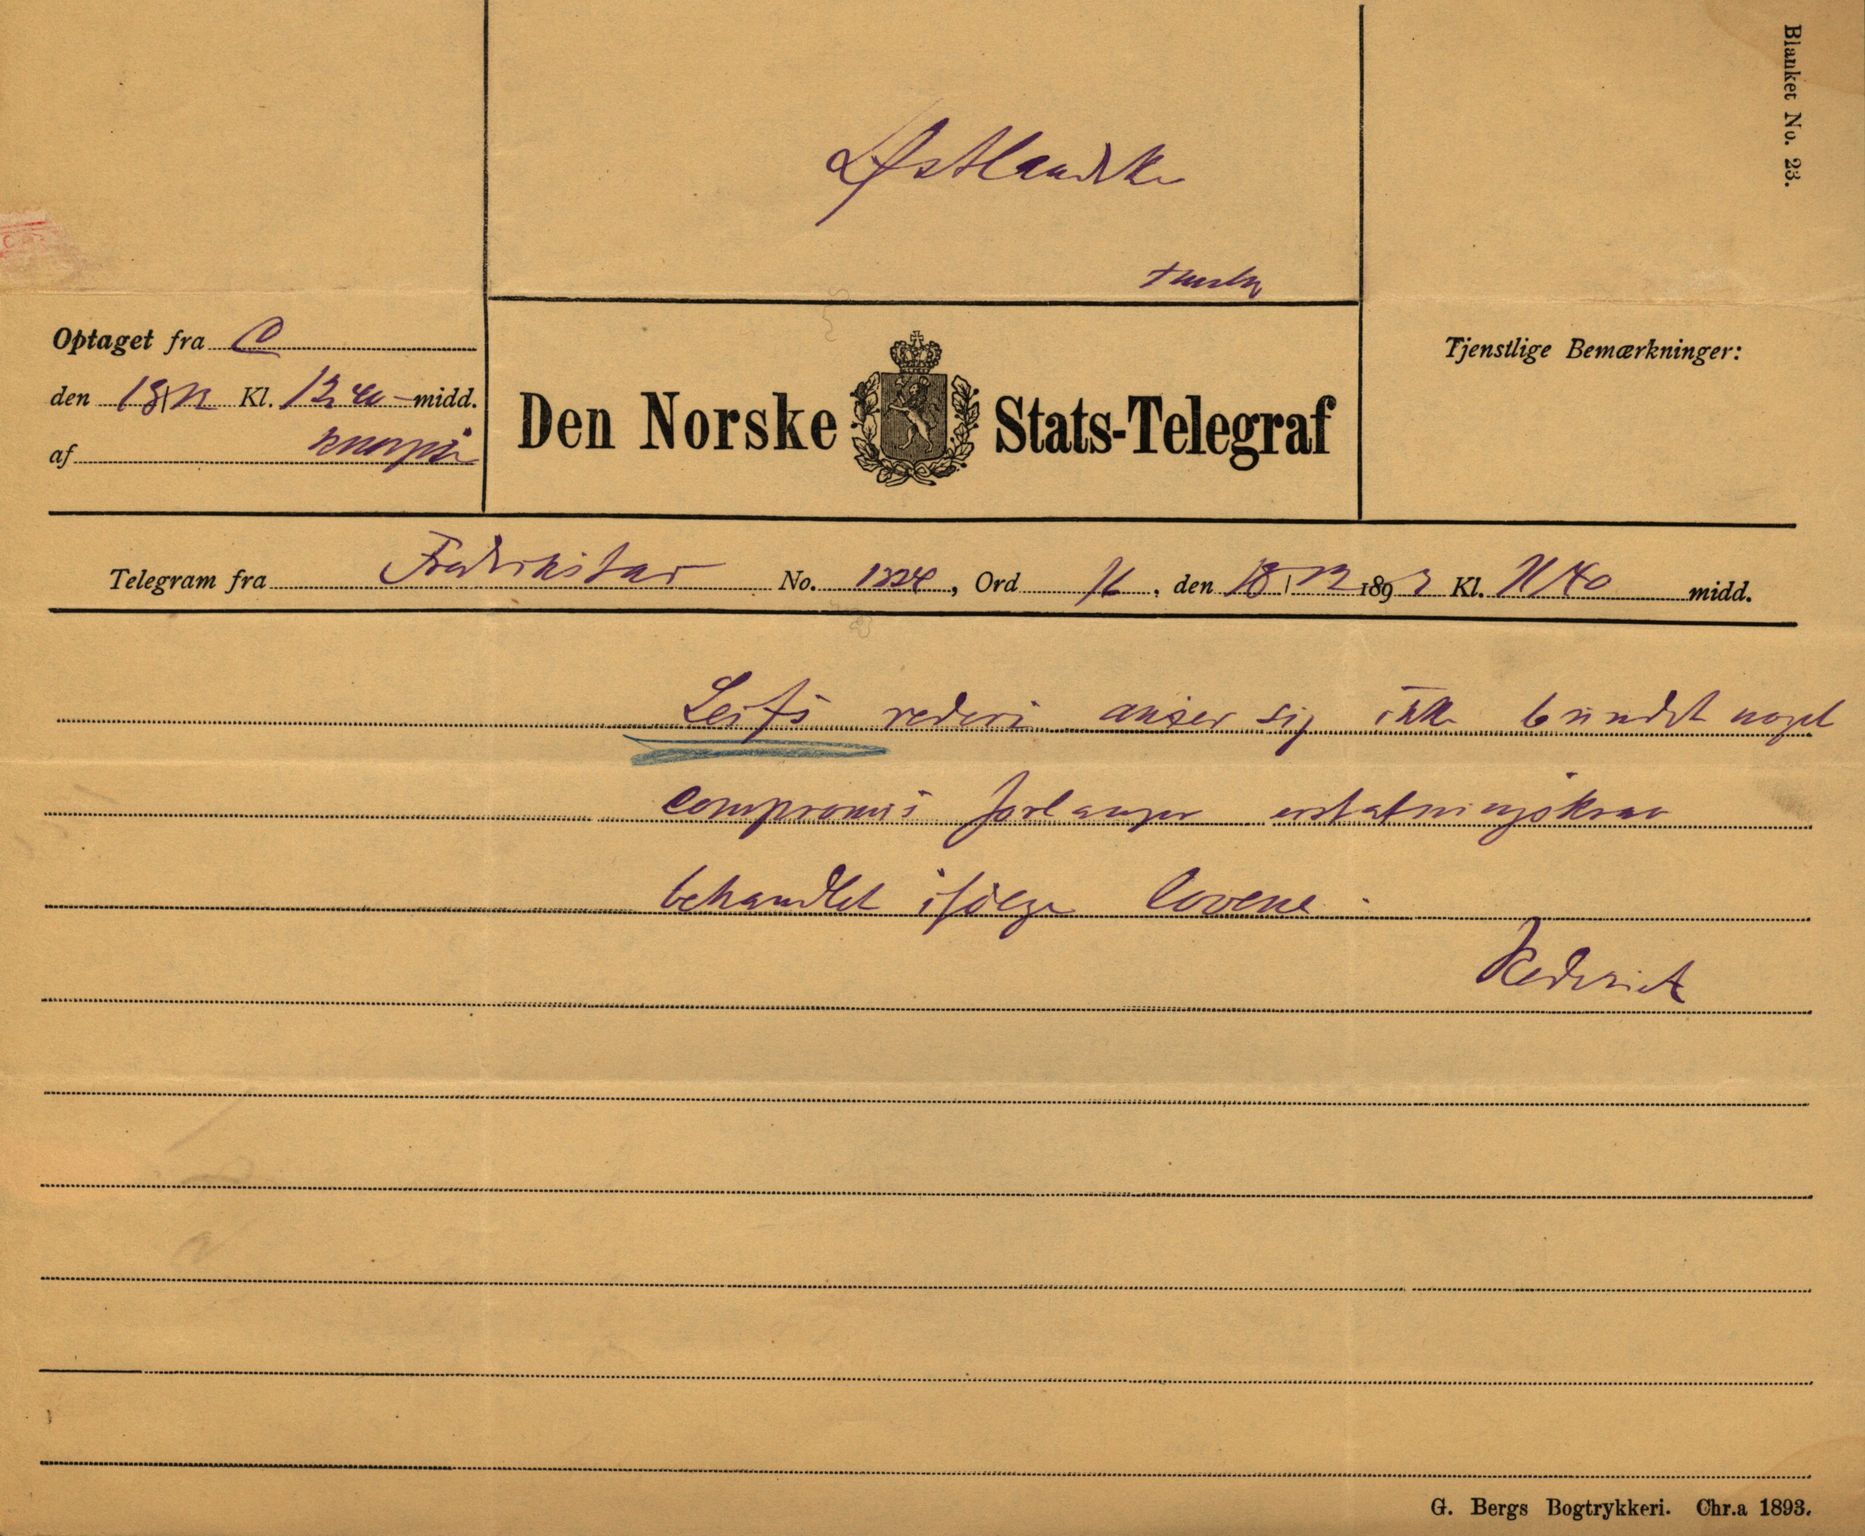 Blanket No. 23.
Østlandske
Optaget fra C
den 18/12 Kl. 12 40 midd.
af
Den Norske Stats-Telegraf
Tjenstlige Bemærkninger:
Telegram fra Fredrikstad No. 1224, Ord 16, den 18/12 1893 Kl. 11 40 midd.
Leifs rederi anser sig ikke bundet noget
compromis forlanger erstatningskrav
behandlet ifølge lovene.
Rederiet
G. Bergs Bogtrykkeri. Chr.a 1893.